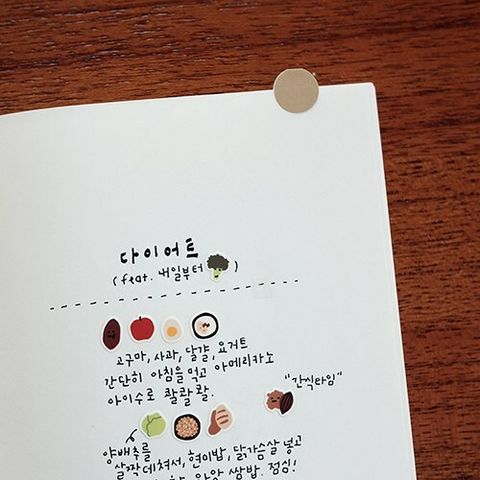 다이어트
(feat. 내일부터 )
고구마, 사과, 달걀, 요거트
간단히 아침을 먹고 아메리카노
아이수로 콸콸콸.
"간식타임"
양배추를
살짝 데쳐서, 현미밥, 닭가슴살 넣고
앙앙 쌈밥. 점심!